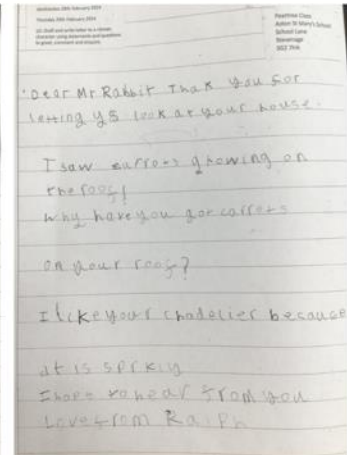 Wednesday 28th February 2024
Thursday 29th February 2024
LO: Draft and write letter to a
character using statements and questions
to greet, comment and enquire.
Peartree Class
School Lane
Stevenage
Dear Mr Rabbit Thak you for
letting us look at your house.
I saw carrots growing on
the roof!
why have you got carrots
on your roof?
I like your chadelier because
it is sprkly
I hope to hear from you
Love from Ralph